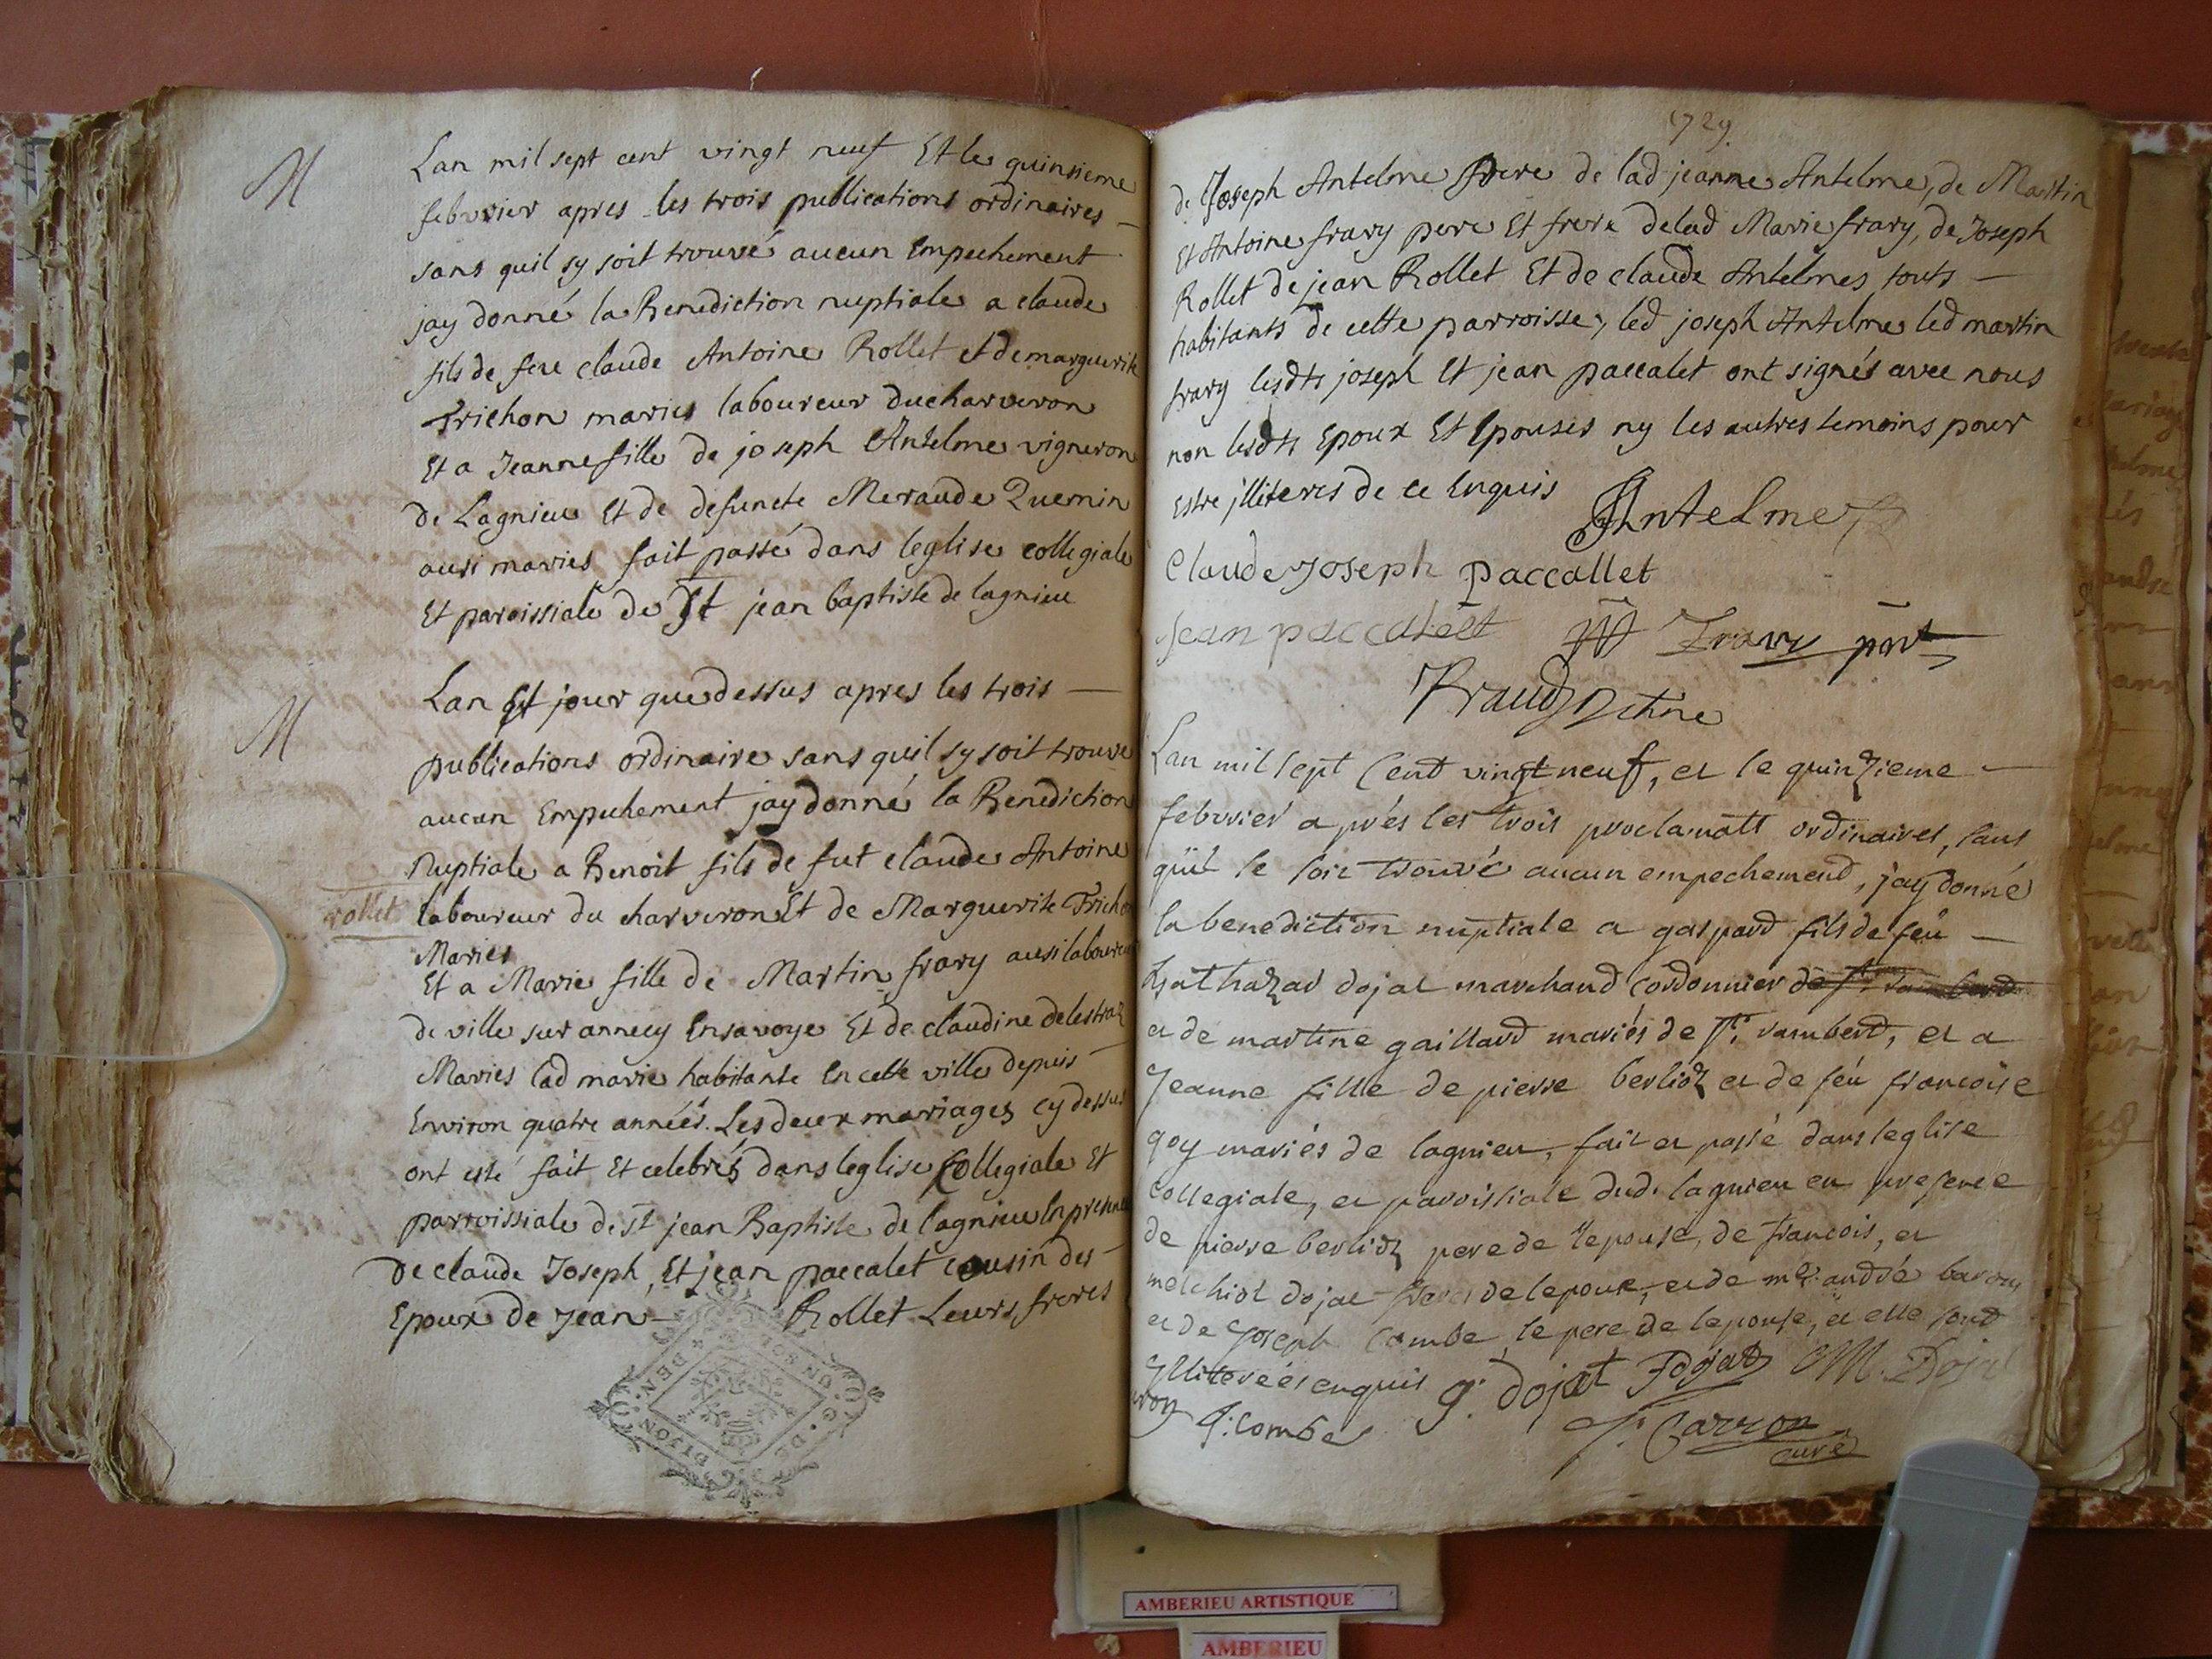 M
Lan mil sept cent vingt neuf Et le quinsieme
febvrier apres les trois publications ordinaires —
sans quil sy soit trouvé aucun Empechement
jay donné la Benediction nuptiale a claude
fils de feu claude Antoine Rollet et de marguerite
Trichon maries laboureur du charveron
Et a Jeanne fille de joseph Antelme vigneron
de Lagnieu Et de defuncte Meraude Quemin
ausi mariés fait passé dans leglise collegiale
Et paroissiale de St jean baptiste de lagnieu
M
Lan Et jour que dessus apres les trois —
publications ordinaire sans quil sy soit trouvé
aucun Empechement jay donné la Benediction
Nuptiale a Benoit fils de fut claude Antoine
rollet
laboureur du charveron Et de Marguerite Trichon
Maries
Et a Marie fille de Martin frary ausi laboureur
de ville sur annecy En savoye Et de claudine delestraz
Maries lad marie habitante En cette ville depuis —
Environ quatre années. Les deux mariages cy dessus
ont esté fait Et celebrés dans leglise Collegiale Et
parroissiale de st jean Baptiste de lagnieu En presence
de claude Joseph, Et jean paccalet cousin des —
Epoux de Jean — Rollet Leurs freres
G. DE
DIJON
GEN
1729.
de Joseph Antelme Pere de lad jeanne Antelme, de Martin
Et Antoine frary pere Et frere delad Marie frary, de Joseph
Rollet de jean Rollet Et de claude Antelmes touts —
habitants de cette parroisse, led joseph Antelme led martin
frary lesdts joseph Et jean paccalet ont signés avec nous
non lesdts Epoux Et Epouses ny les autres temoins pour
Estre jlliteres de ce Enquis
Antelme
Claude Joseph paccallet
Jean paccalett M Frary
Lan mil sept Cent vingt neuf, et le quinzieme —
febvrier aprés les trois proclamatts ordinaires, sans
quil se soit trouvé aucun empechement, jay donné
la benediction nuptiale a gaspard fils de feu —
balthazar dojat marchand Cordonnier de st. rambert
et de martine gaillard mariés de st. rambert, et a
Jeanne fille de pierre berlioz et de féu francoise
goy mariés de lagnieu, fait et passé dans leglise
collegiale, et parroissiale dud. lagnieu en presence
de pierre berlioz pere de lepouse, de francois, et
melchiot dojat freres de lepoux, et de mr. andré baron
et de Joseph Combe, le pere de lepouse, et elle sont
Illiterées enquis g. dojat F dojat M. Dojat
J. Combe
Carron
curé
AMBERIEU ARTISTIQUE
AMBERIEU